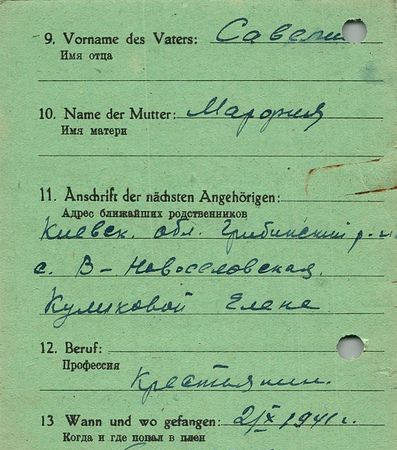 9. Vorname des Vaters: Савелий
Имя отца
10. Name der Mutter: Марфия
Имя матери
11. Anschrift der nächsten Angehörigen:
Адрес ближайших родственников
Киевск. обл. р-н
с. В-Новоселовская
Куликовой Елене
12. Beruf:
Профессия
Крестьянин.
13 Wann und wo gefangen: 2/X 1941 г.
Когда и где попал в плен